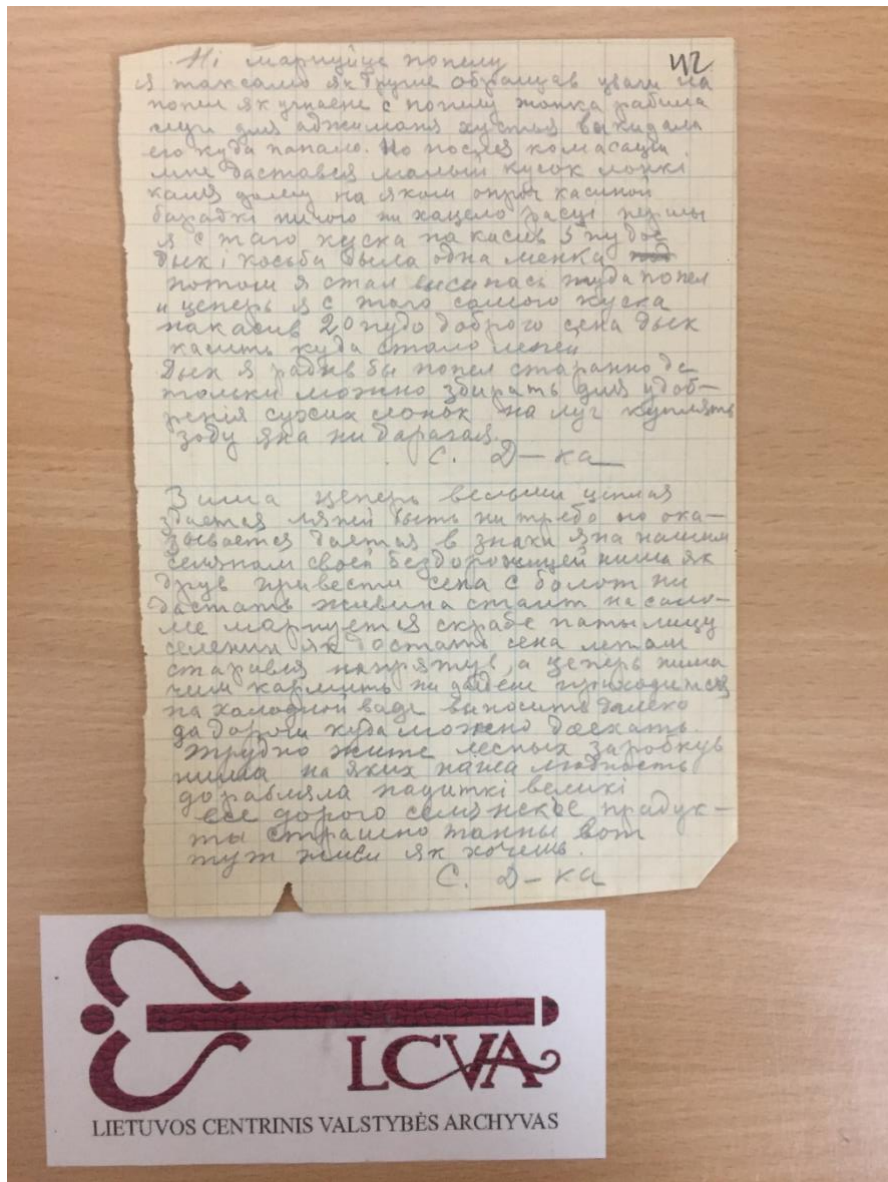 42
Ні марнуйце попелу
я таксамо як другие обращав уваги на
попел як учпаене с попелу жонка рабила
луги для аджиманя хустья выкидала
его куда папало. Но после комасации
мне достався малый кусок лонкі
каля дому на яком опроч касмной
барадкі ничого ни хацело расці першы
я с таго куска на касив 5 пудов
дык і косьба была одна менка
потом я стал висипась туда попел
и цепер я с того самого куска
накасив 20 пудо доброго сена дык
касить куда стало лепей
Дык я радив бы попел старанно де
толки можно збирать для удоб-
ренія сухих лонок на луг куплять
зоду яна ни дарагая.
С. Д-ка
Зима цеперь вельми цiплая
здается ляпей быть ни треба но ока-
зывается дается в знаки яна нашим
селянам своей бездорожицей нима як
друв привести сена с болот ни
достать живина стаит на сало-
ме марнуется скрабе патылицу
селенин як достать сена летам
старався напрятув, а цеперь нима
чим кармить ни дойдеш приходится
па халодной ваде выносить далеко
да дороги куда можно даехать.
Трудно жите лесных заробкув
нима на яких наша людность
дорабляла падиткі великі
все дорого селянское прадук-
ты страшно танны вот
тут живи як хочешь.
С. Д-ка
LCVA
LIETUVOS CENTRINIS VALSTYBĖS ARCHYVAS